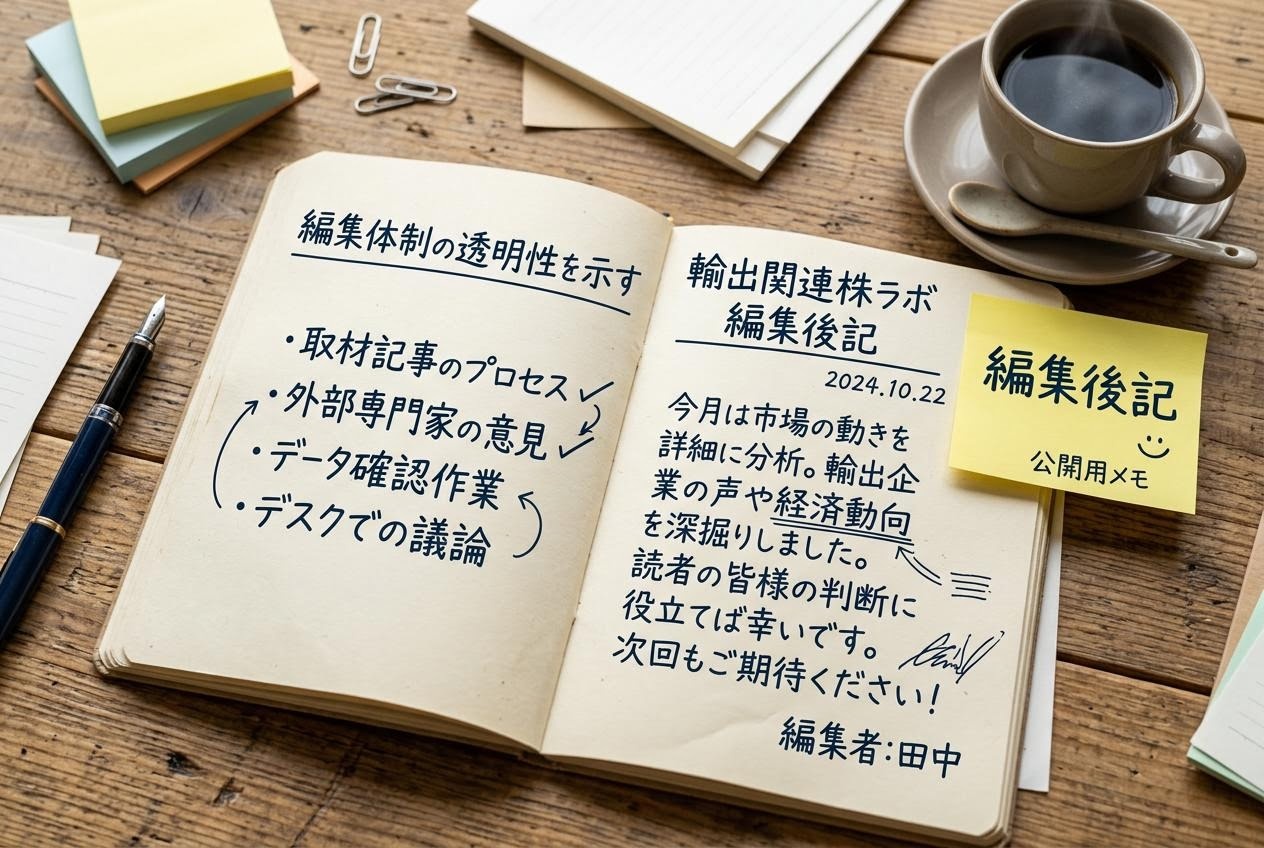 編集体制の透明性を示す
・取材記事のプロセス
・外部専門家の意見
・データ確認作業
・デスクでの議論
輸出関連株ラボ
編集後記
2024.10.22
今月は市場の動きを
詳細に分析。輸出企
業の声や経済動向
を深掘りしました。
読者の皆様の判断に
役立てば幸いです。
次回もご期待ください!
編集者:田中
編集後記
公開用メモ